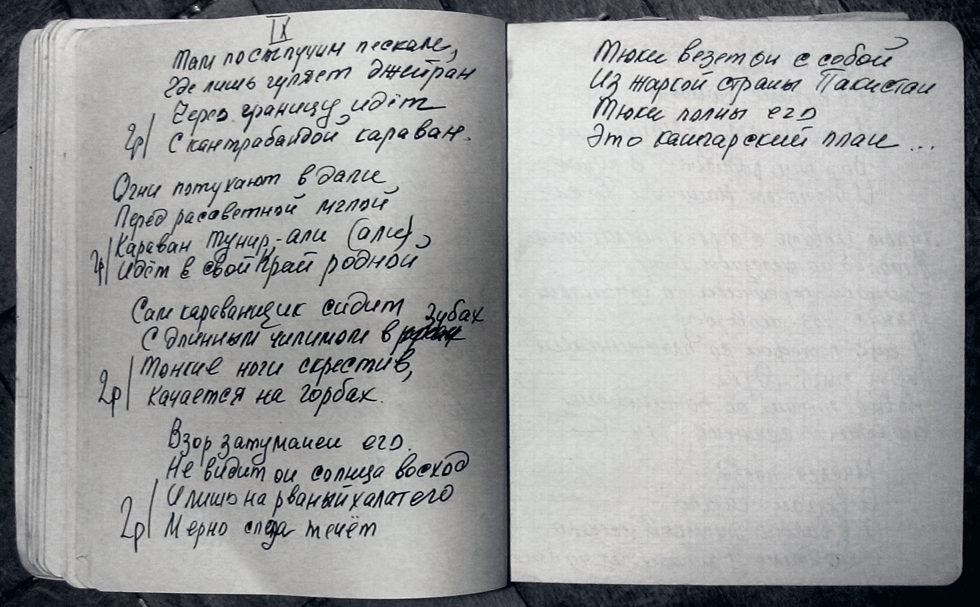 IX
Там по сыпучим пескам,
Где лишь гуляет джейран
Через границу идёт
2р| С контрабандой караван.
Огни потухают вдали
Перед рассветной мглой
Караван Тунир,-али (али),
2р| Идёт в свой край родной
Сам караванщик сидит
С длинным чилимом в зубах
Тонкие ноги скрестив,
2р| Качается на горбах.
Взор затуманен его.
Не видит он солнца восход
И лишь на рваный халат его
2р| Мерно слеза течёт
Тюки везет он с собой
Из жаркой страны Пакистан
Тюки полны его
Это кашгарский план ...